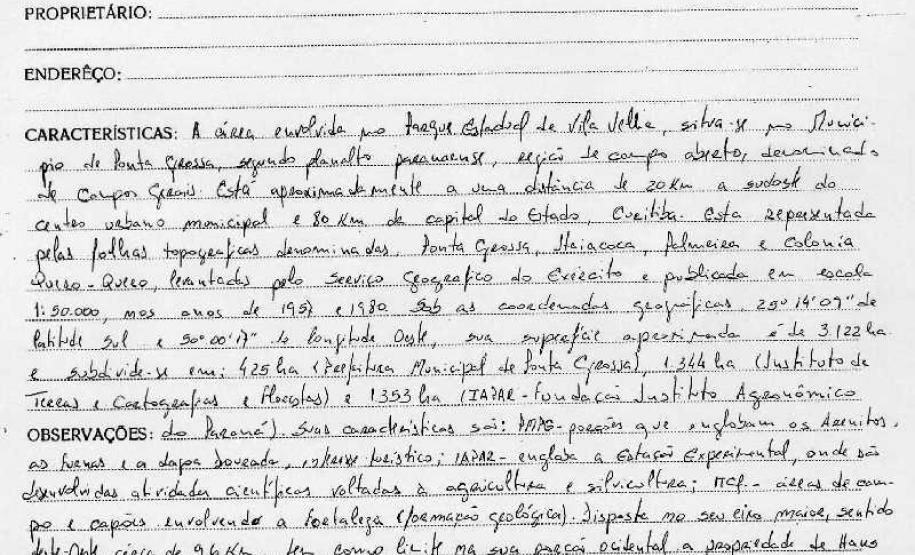 PROPRIETÁRIO:
ENDERÊÇO:
CARACTERÍSTICAS: A área envolvida no Parque Estadual de Vila Velha, situa-se no Municí-
pio de Ponta Grossa, segundo planalto paranaense, região de campo aberto, denominado
de Campos Gerais. Está aproximadamente a uma distância de 20 Km a sudoste do
centro urbano municipal e 80 Km da capital do Estado, Curitiba. Esta representada
pelas folhas topograficas denominadas, Ponta Grossa, Itaiacoca, Palmeira e Colonia
Quero-Quero, levantadas pelo Serviço Geografico do Exército e publicada em escala
1:50.000, nos anos de 1957 e 1980 Sob as coordenadas geográficas 25º 14' 09" de
latitude Sul e 50º 00' 17" de longitude Oeste, sua aproximada é de 3.122 ha
e subdivide-se em: 425 ha (Prefeitura Municipal de Ponta Grossa), 1.344 ha (Instituto de
Terras e Cartografias e Florestas) e 1353 ha (IAPAR - Fundação Instituto Agronômico
OBSERVAÇÕES: do Paraná). Suas características são: PMPG - porções que englobam os Arenitos,
as furnas e a lagoa dourada, interesse turistico; IAPAR - engloba a Estação Experimental, onde são
desenvolvidas atividades cientificas voltadas à agricultura e silvicultura; ITCF - áreas de cam-
po e capões envolvendo a Fortaleza (formação geológica). Disposto no seu eixo maior, sentido
Oeste cerca de 9,6 Km tem como limite na sua porção ocidental a propriedade de Hans